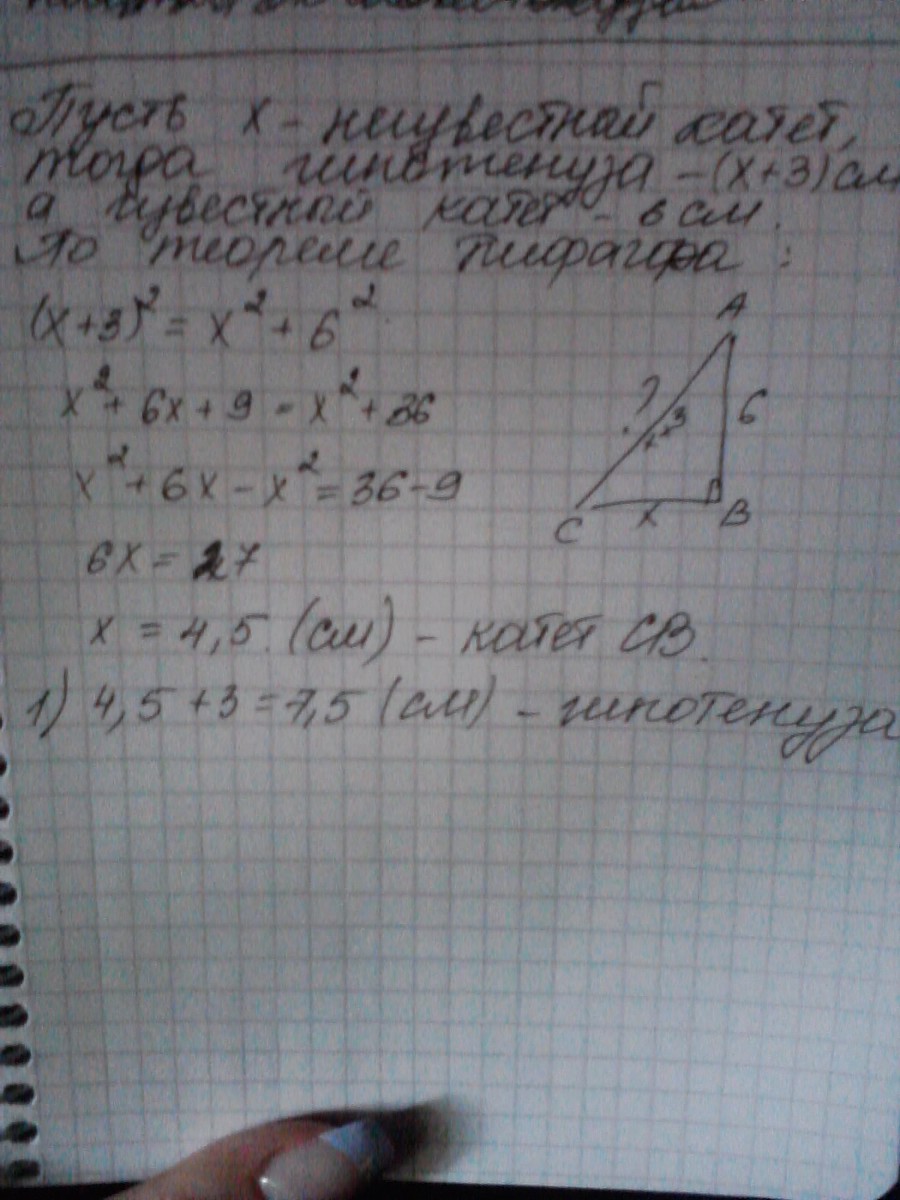 Пусть x - неизвестный катет,
тогда гипотенуза - (x+3) см
а известный катет - 6 см.
По теореме Пифагора :
(x+3)² = x² + 6²
x² + 6x + 9 = x² + 36
x² + 6x - x² = 36 - 9
6x = 27
x = 4,5 (см) - катет CB.
1) 4,5 + 3 = 7,5 (см) - гипотенуза
A
?
6
C
x
B